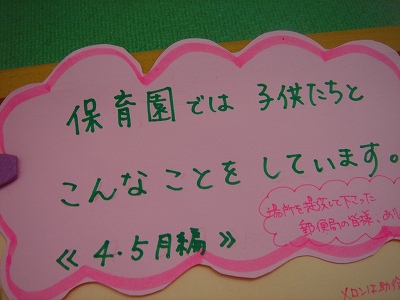 保育園では 子供たちと
こんなことを しています。
≪ 4・5月編 ≫
場所を提供して下さった
郵便局の皆様、あり